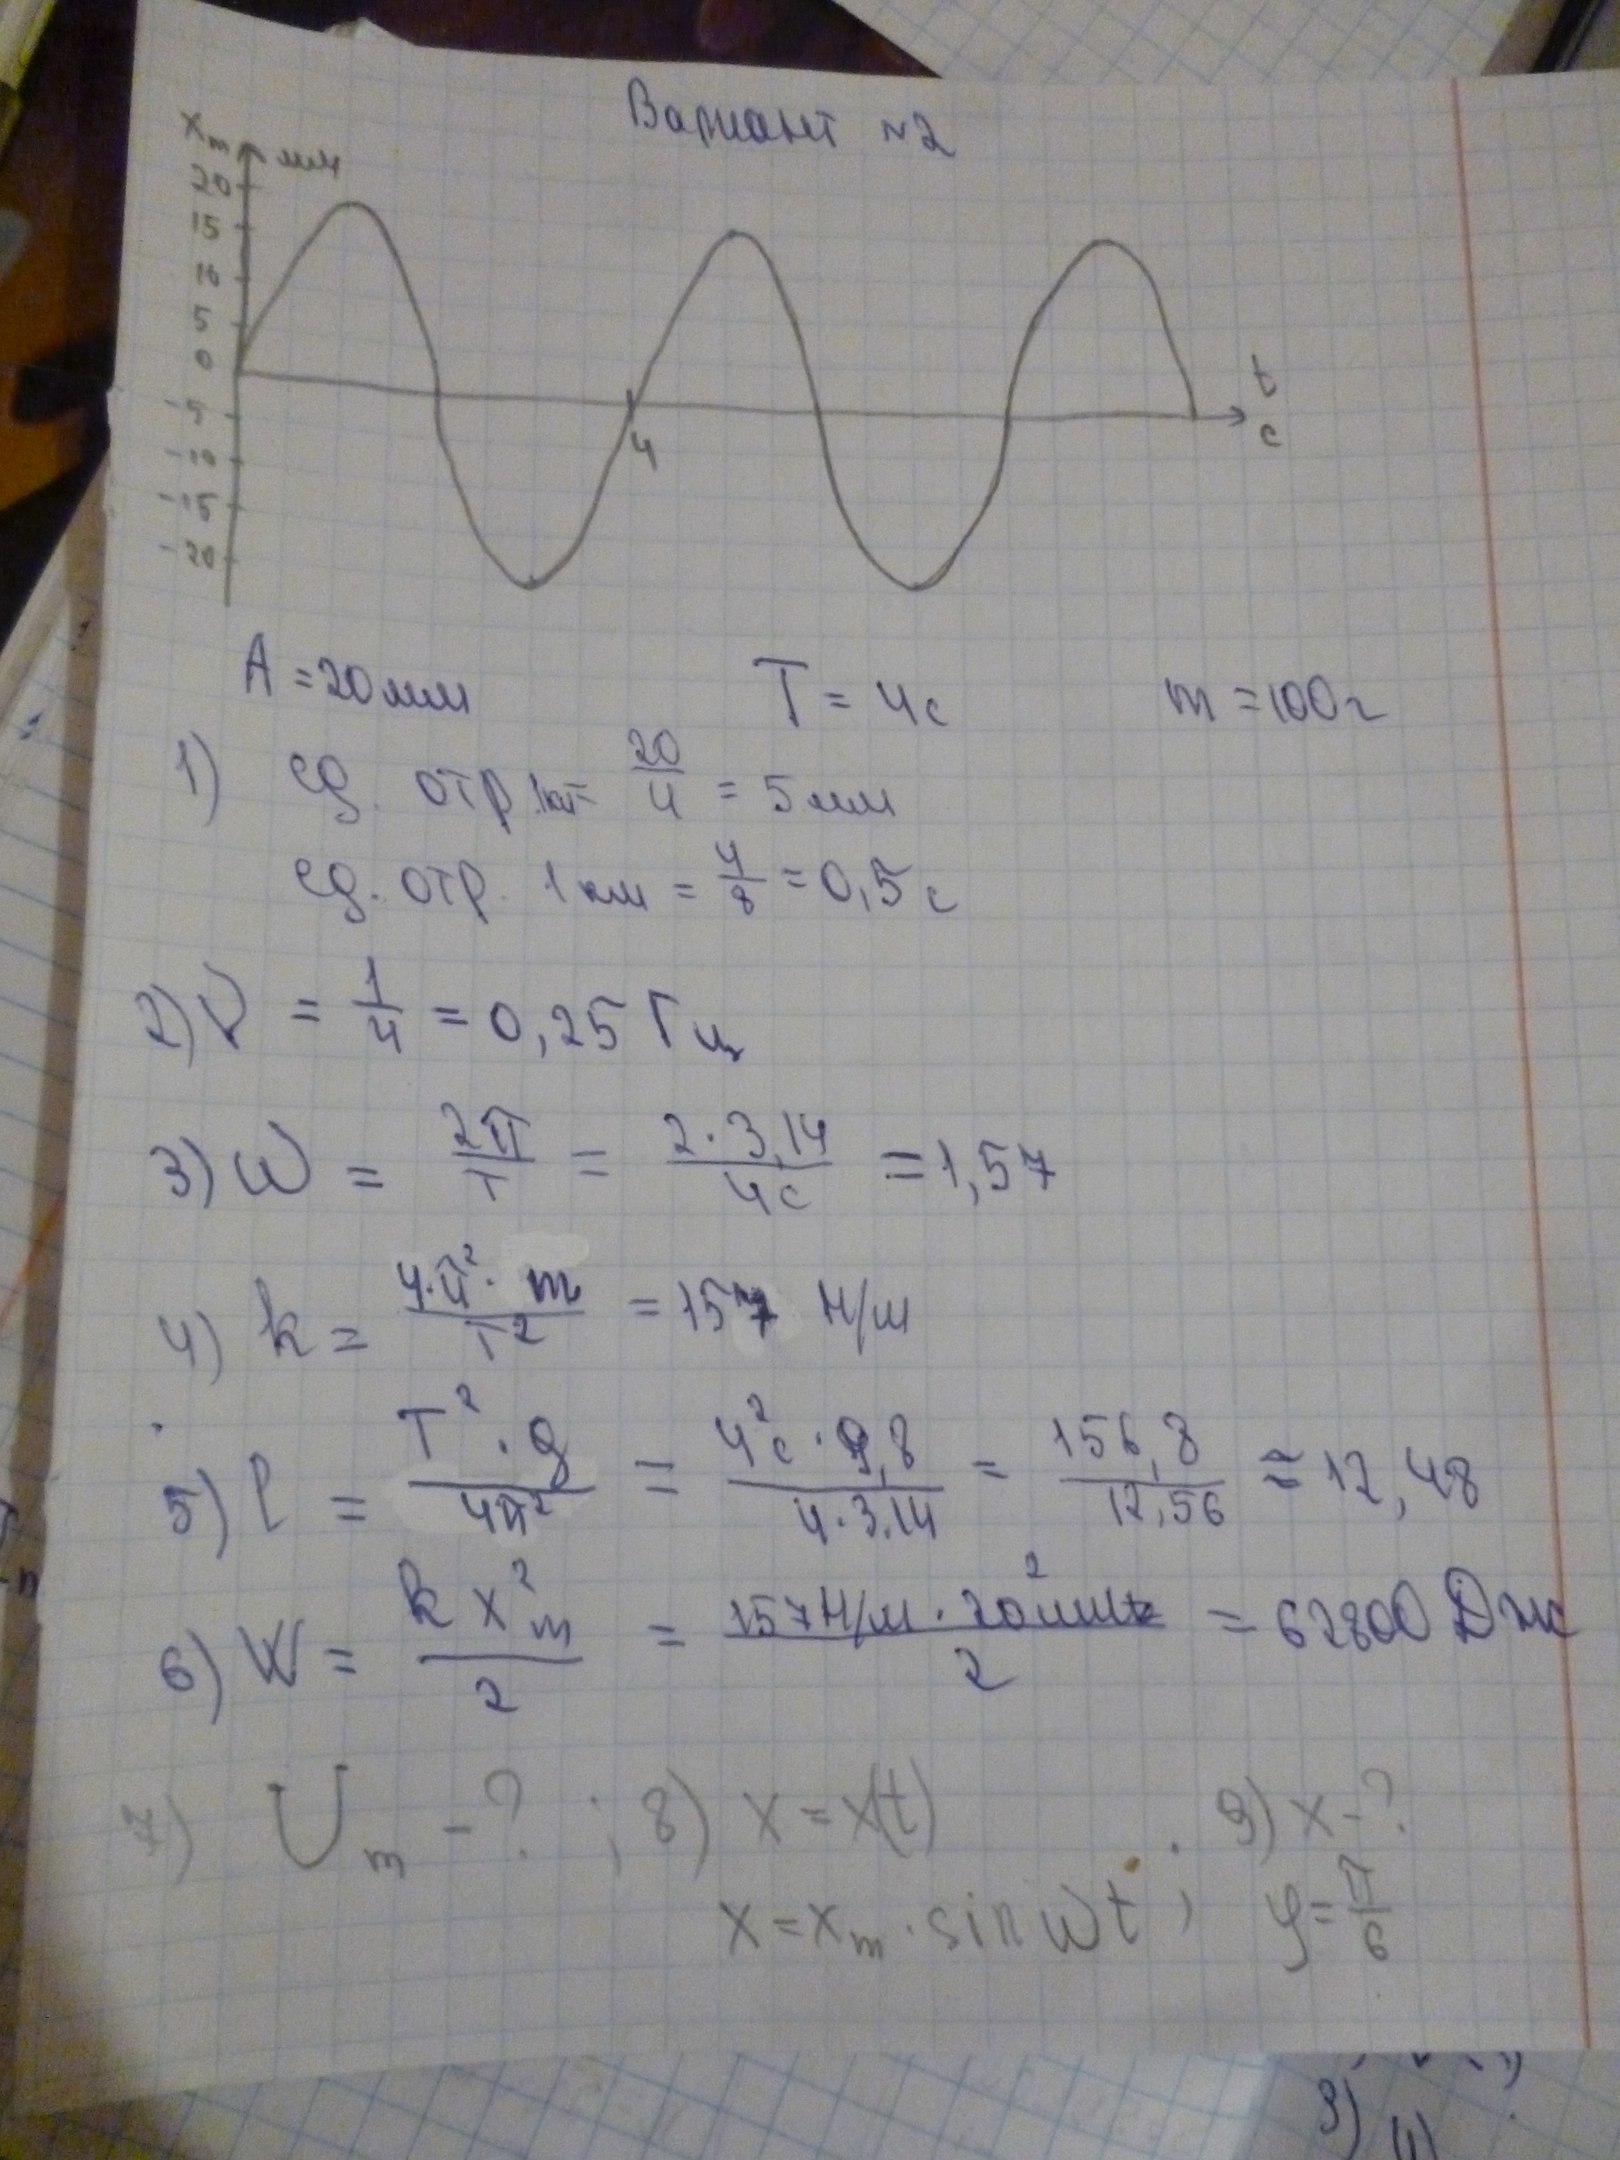 Вариант №2
xm мм
20
15
10
5
0
-5
-10
-15
-20
4
t
c
A = 20 мм T = 4с m = 100г
1) ед. отр 1кл = 20/4 = 5 мм
ед. отр. 1 км = 4/8 = 0,5 с
2) ν = 1/4 = 0,25 Гц
3) ω = 2π/T = 2·3,14/4с = 1,57
4) k = 4·π²·m/T² = 157 Н/м
5) l = T²·g/4π² = 4²с·9,8/4·3,14 = 156,8/12,56 ≈ 12,48
6) W = kx²m/2 = 157Н/м·20²мм/2 = 62800 Дж
7) Um - ? ; 8) x = x(t) . 9) x - ?
x = xm · sin ωt ; φ = π/6
9)